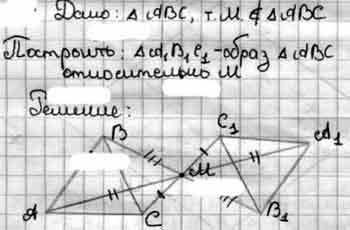 Дано: △ABC, т. M ∉ △ABC
Построить: △A₁B₁C₁ - образ △ABC
относительно M
Решение:
B
C₁
A₁
M
A
C
B₁